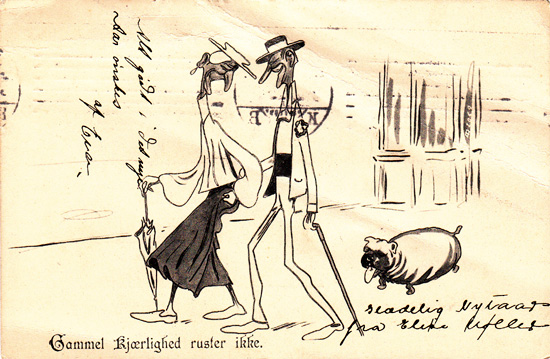 Alt godt i det nye
Aar ønskes
af Ewa.
Gammel Kjærlighed ruster ikke.
Glædelig Nytaar
fra Eline Møller